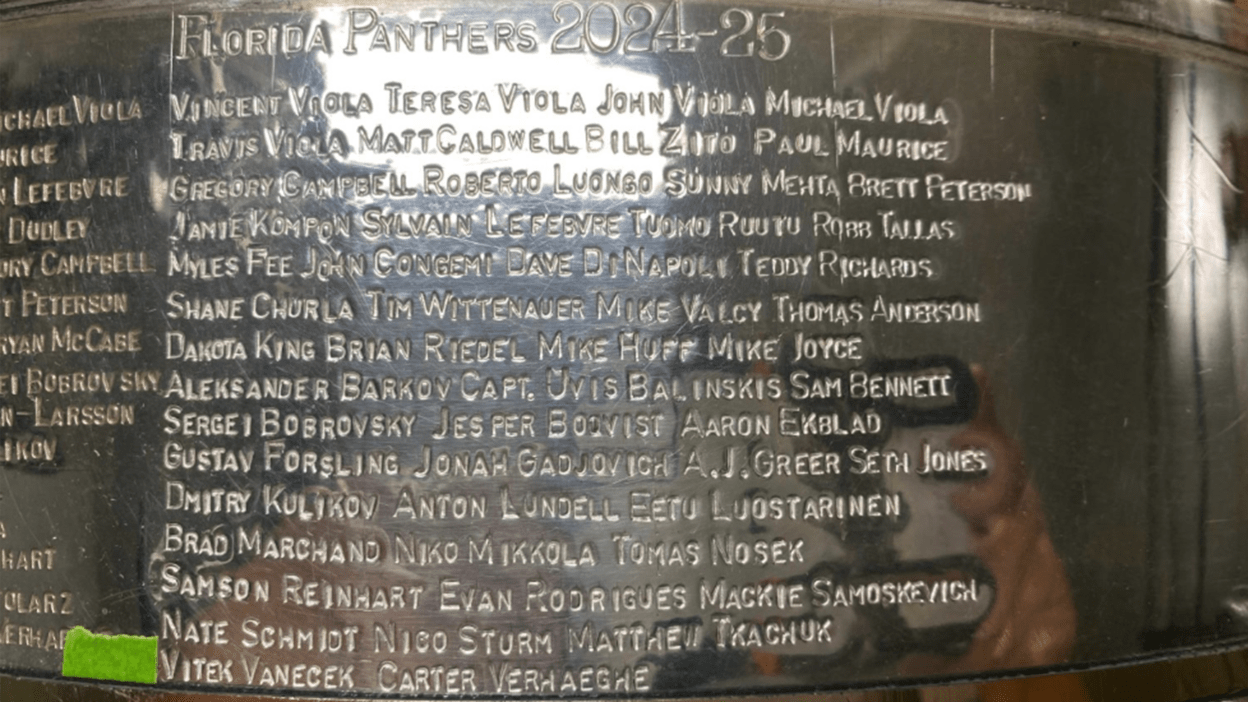 ICHAEL VIOLA
URICE
LEFEBVRE
DUDLEY
ORY CAMPBELL
T PETERSON
RYAN MCCABE
EI BOBROVSKY
N-LARSSON
IKOV
HART
TOLARZ
VERHAE
FLORIDA PANTHERS 2024-25
VINCENT VIOLA TERESA VIOLA JOHN VIOLA MICHAEL VIOLA
TRAVIS VIOLA MATT CALDWELL BILL ZIITO PAUL MAURICE
GREGORY CAMPBELL ROBERTO LUONGO SUNNY MEHTA BRETT PETERSON
JAMIE KOMPON SYLVAIN LEFEBVRE TUOMO RUUTU ROBB TALLAS
MYLES FEE JOHN CONGEMI DAVE DINAPOLI TEDDY RICHARDS
SHANE CHURLA TIM WITTENAUER MIKE VALCY THOMAS ANDERSON
DAKOTA KING BRIAN RIEDEL MIKE HUFF MIKE JOYCE
ALEKSANDER BARKOV CAPT. UVIS BALINSKIS SAM BENNETT
SERGEI BOBROVSKY JESPER BOQVIST AARON EKBLAD
GUSTAV FORSLING JONAH GADJOVICH A.J. GREER SETH JONES
DMITRY KULIKOV ANTON LUNDELL EETU LUOSTARINEN
BRAD MARCHAND NIKO MIKKOLA TOMAS NOSEK
SAMSON REINHART EVAN RODRIGUES MACKIE SAMOSKEVICH
NATE SCHMIDT NICO STURM MATTHEW TKACHUK
VITEK VANECEK CARTER VERHAEGHE